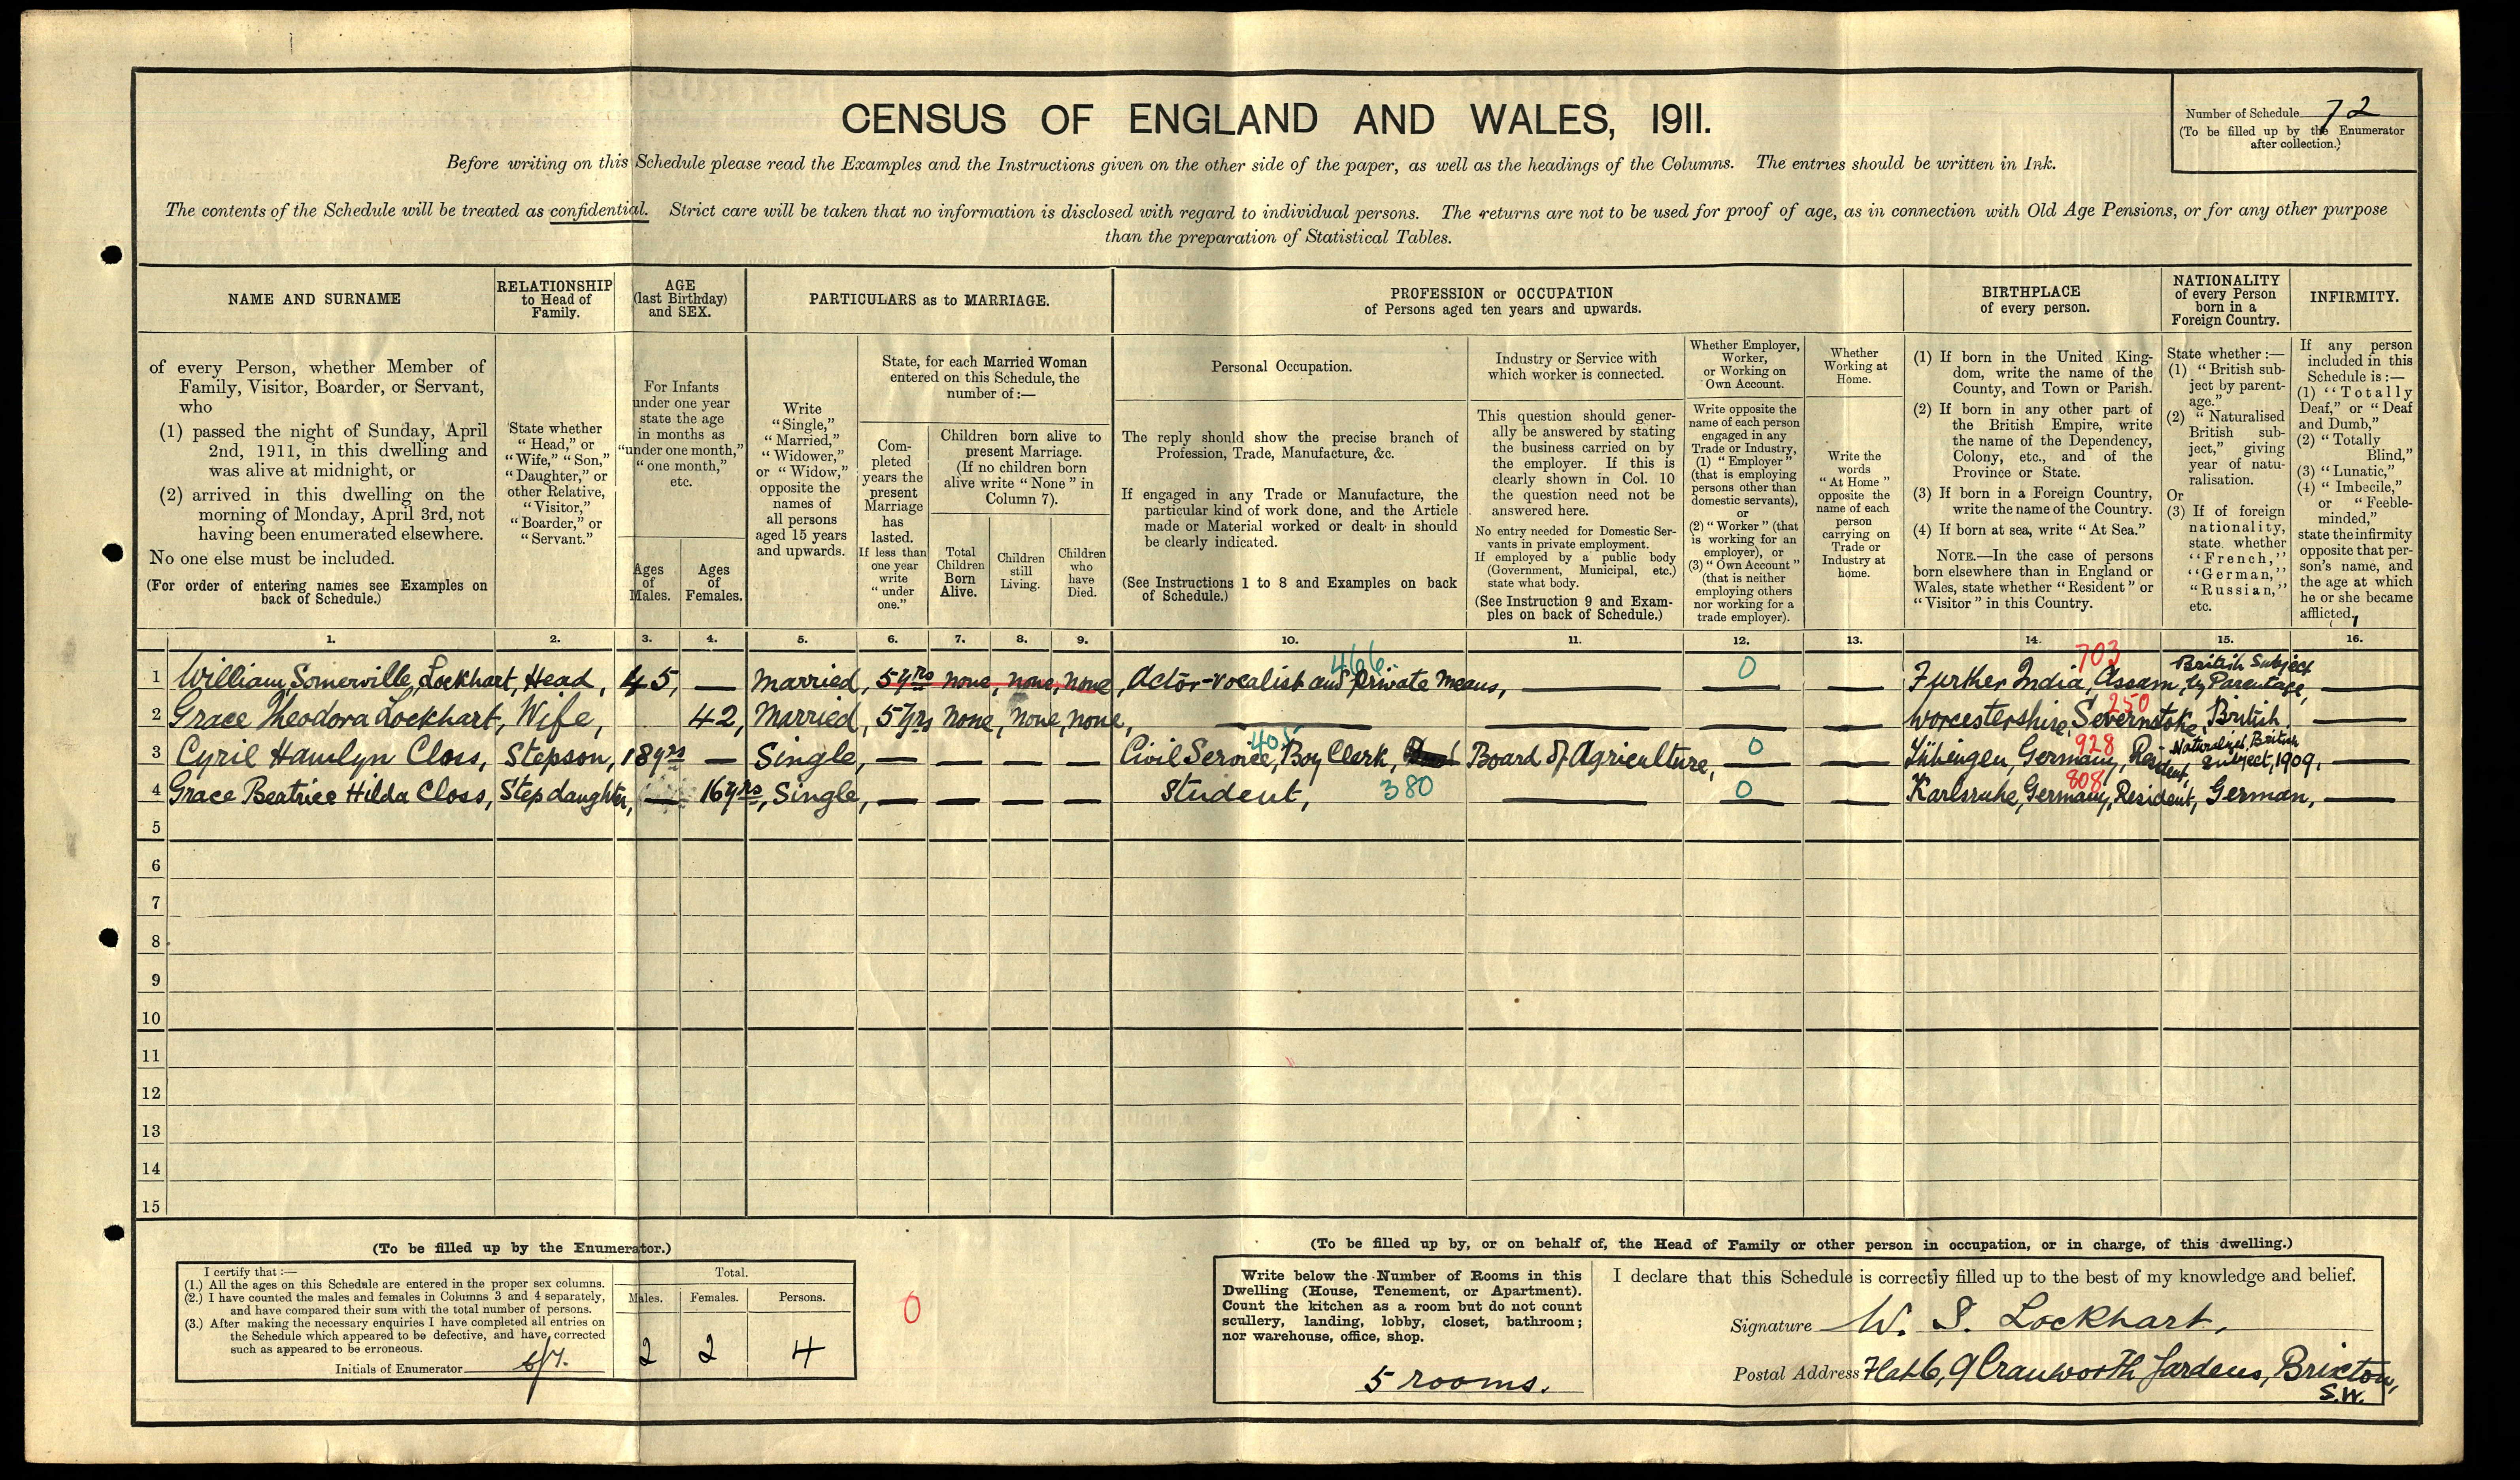 CENSUS OF ENGLAND AND WALES, 1911.
Number of Schedule 72
(To be filled up by the Enumerator
after collection.)
Before writing on this Schedule please read the Examples and the Instructions given on the other side of the paper, as well as the headings of the Columns. The entries should be written in Ink.
The contents of the Schedule will be treated as confidential. Strict care will be taken that no information is disclosed with regard to individual persons. The returns are not to be used for proof of age, as in connection with Old Age Pensions, or for any other purpose
than the preparation of Statistical Tables.
NAME AND SURNAME
of every Person, whether Member of
Family, Visitor, Boarder, or Servant,
who
(1) passed the night of Sunday, April
2nd, 1911, in this dwelling and
was alive at midnight, or
(2) arrived in this dwelling on the
morning of Monday, April 3rd, not
having been enumerated elsewhere.
No one else must be included.
(For order of entering names see Examples on
back of Schedule.)
RELATIONSHIP
to Head of
Family.
State whether
"Head," or
"Wife," "Son,"
"Daughter," or
other Relative,
"Visitor,"
"Boarder," or
"Servant."
AGE
(last Birthday)
and SEX.
For Infants
under one year
state the age
in months as
"under one month,"
"one month,"
etc.
Ages
of
Males.
Ages
of
Females.
PARTICULARS as to MARRIAGE.
Write
"Single,"
"Married,"
"Widower,"
or "Widow,"
opposite the
names of
all persons
aged 15 years
and upwards.
State, for each Married Woman
entered on this Schedule, the
number of:—
Com-
pleted
years the
present
Marriage
has
lasted.
If less than
one year
write
"under
one."
Children born alive to
present Marriage.
(If no children born
alive write "None" in
Column 7).
Total
Children
Born
Alive.
Children
still
Living.
Children
who
have
Died.
PROFESSION or OCCUPATION
of Persons aged ten years and upwards.
Personal Occupation.
The reply should show the precise branch of
Profession, Trade, Manufacture, &c.
If engaged in any Trade or Manufacture, the
particular kind of work done, and the Article
made or Material worked or dealt in should
be clearly indicated.
(See Instructions 1 to 8 and Examples on back
of Schedule.)
Industry or Service with
which worker is connected.
This question should gener-
ally be answered by stating
the business carried on by
the employer. If this is
clearly shown in Col. 10
the question need not be
answered here.
No entry needed for Domestic Ser-
vants in private employment.
If employed by a public body
(Government, Municipal, etc.)
state what body.
(See Instruction 9 and Exam-
ples on back of Schedule.)
Whether Employer,
Worker,
or Working on
Own Account.
Write opposite the
name of each person
engaged in any
Trade or Industry,
(1) "Employer"
(that is employing
persons other than
domestic servants),
or
(2) "Worker" (that
is working for an
employer), or
(3) "Own Account"
(that is neither
employing others
nor working for a
trade employer).
Whether
Working at
Home.
Write the
words
"At Home"
opposite the
name of each
person
carrying on
Trade or
Industry at
home.
BIRTHPLACE
of every person.
(1) If born in the United King-
dom, write the name of the
County, and Town or Parish.
(2) If born in any other part of
the British Empire, write
the name of the Dependency,
Colony, etc., and of the
Province or State.
(3) If born in a Foreign Country,
write the name of the Country.
(4) If born at sea, write "At Sea."
NOTE.—In the case of persons
born elsewhere than in England or
Wales, state whether "Resident" or
"Visitor" in this Country.
NATIONALITY
of every Person
born in a
Foreign Country.
State whether:—
(1) "British sub-
ject by parent-
age."
(2) "Naturalised
British sub-
ject," giving
year of natu-
ralisation.
Or
(3) If of foreign
nationality,
state whether
"French,"
"German,"
"Russian,"
etc.
INFIRMITY.
If any person
included in this
Schedule is:—
(1) "Totally
Deaf," or "Deaf
and Dumb,"
(2) "Totally
Blind,"
(3) "Lunatic,"
(4) "Imbecile,"
or "Feeble-
minded,"
state the infirmity
opposite that per-
son's name, and
the age at which
he or she became
afflicted.
1. 2. 3. 4. 5. 6. 7. 8. 9. 10. 11. 12. 13. 14. 15. 16.
466 703 British Subject
1 William Somerville Lockhart, Head, 45, — Married, 5 yrs none, none, none, Actor-vocalist and private means, — 0 — Further India, Assam, by Parentage, —
250
2 Grace Theodora Lockhart, Wife, 42, Married, 5 yrs none, none, none, — — — — Worcestershire, Severnstoke, British. —
405 928 Naturalized British
3 Cyril Hamlyn Closs, Stepson, 18 yrs — Single, — — — — Civil Service, Boy Clerk, Board of Agriculture, 0 — — Germany, Resident, Subject, 1909. —
808
4 Grace Beatrice Hilda Closs, Step daughter, — 16 yrs, Single, — — — — Student, 380 — 0 — Karlsruhe, Germany, Resident, German, —
5
6
7
8
9
10
11
12
13
14
15
(To be filled up by the Enumerator.)
I certify that:—
(1.) All the ages on this Schedule are entered in the proper sex columns.
(2.) I have counted the males and females in Columns 3 and 4 separately,
and have compared their sum with the total number of persons.
(3.) After making the necessary enquiries I have completed all entries on
the Schedule which appeared to be defective, and have corrected
such as appeared to be erroneous.
Initials of Enumerator
Total.
Males. Females. Persons.
2 2 4
0
(To be filled up by, or on behalf of, the Head of Family or other person in occupation, or in charge, of this dwelling.)
Write below the Number of Rooms in this
Dwelling (House, Tenement, or Apartment).
Count the kitchen as a room but do not count
scullery, landing, lobby, closet, bathroom;
nor warehouse, office, shop.
5 rooms.
I declare that this Schedule is correctly filled up to the best of my knowledge and belief.
Signature W. S. Lockhart.
Postal Address Flat 6, 9 Cranworth Gardens, Brixton,
S.W.